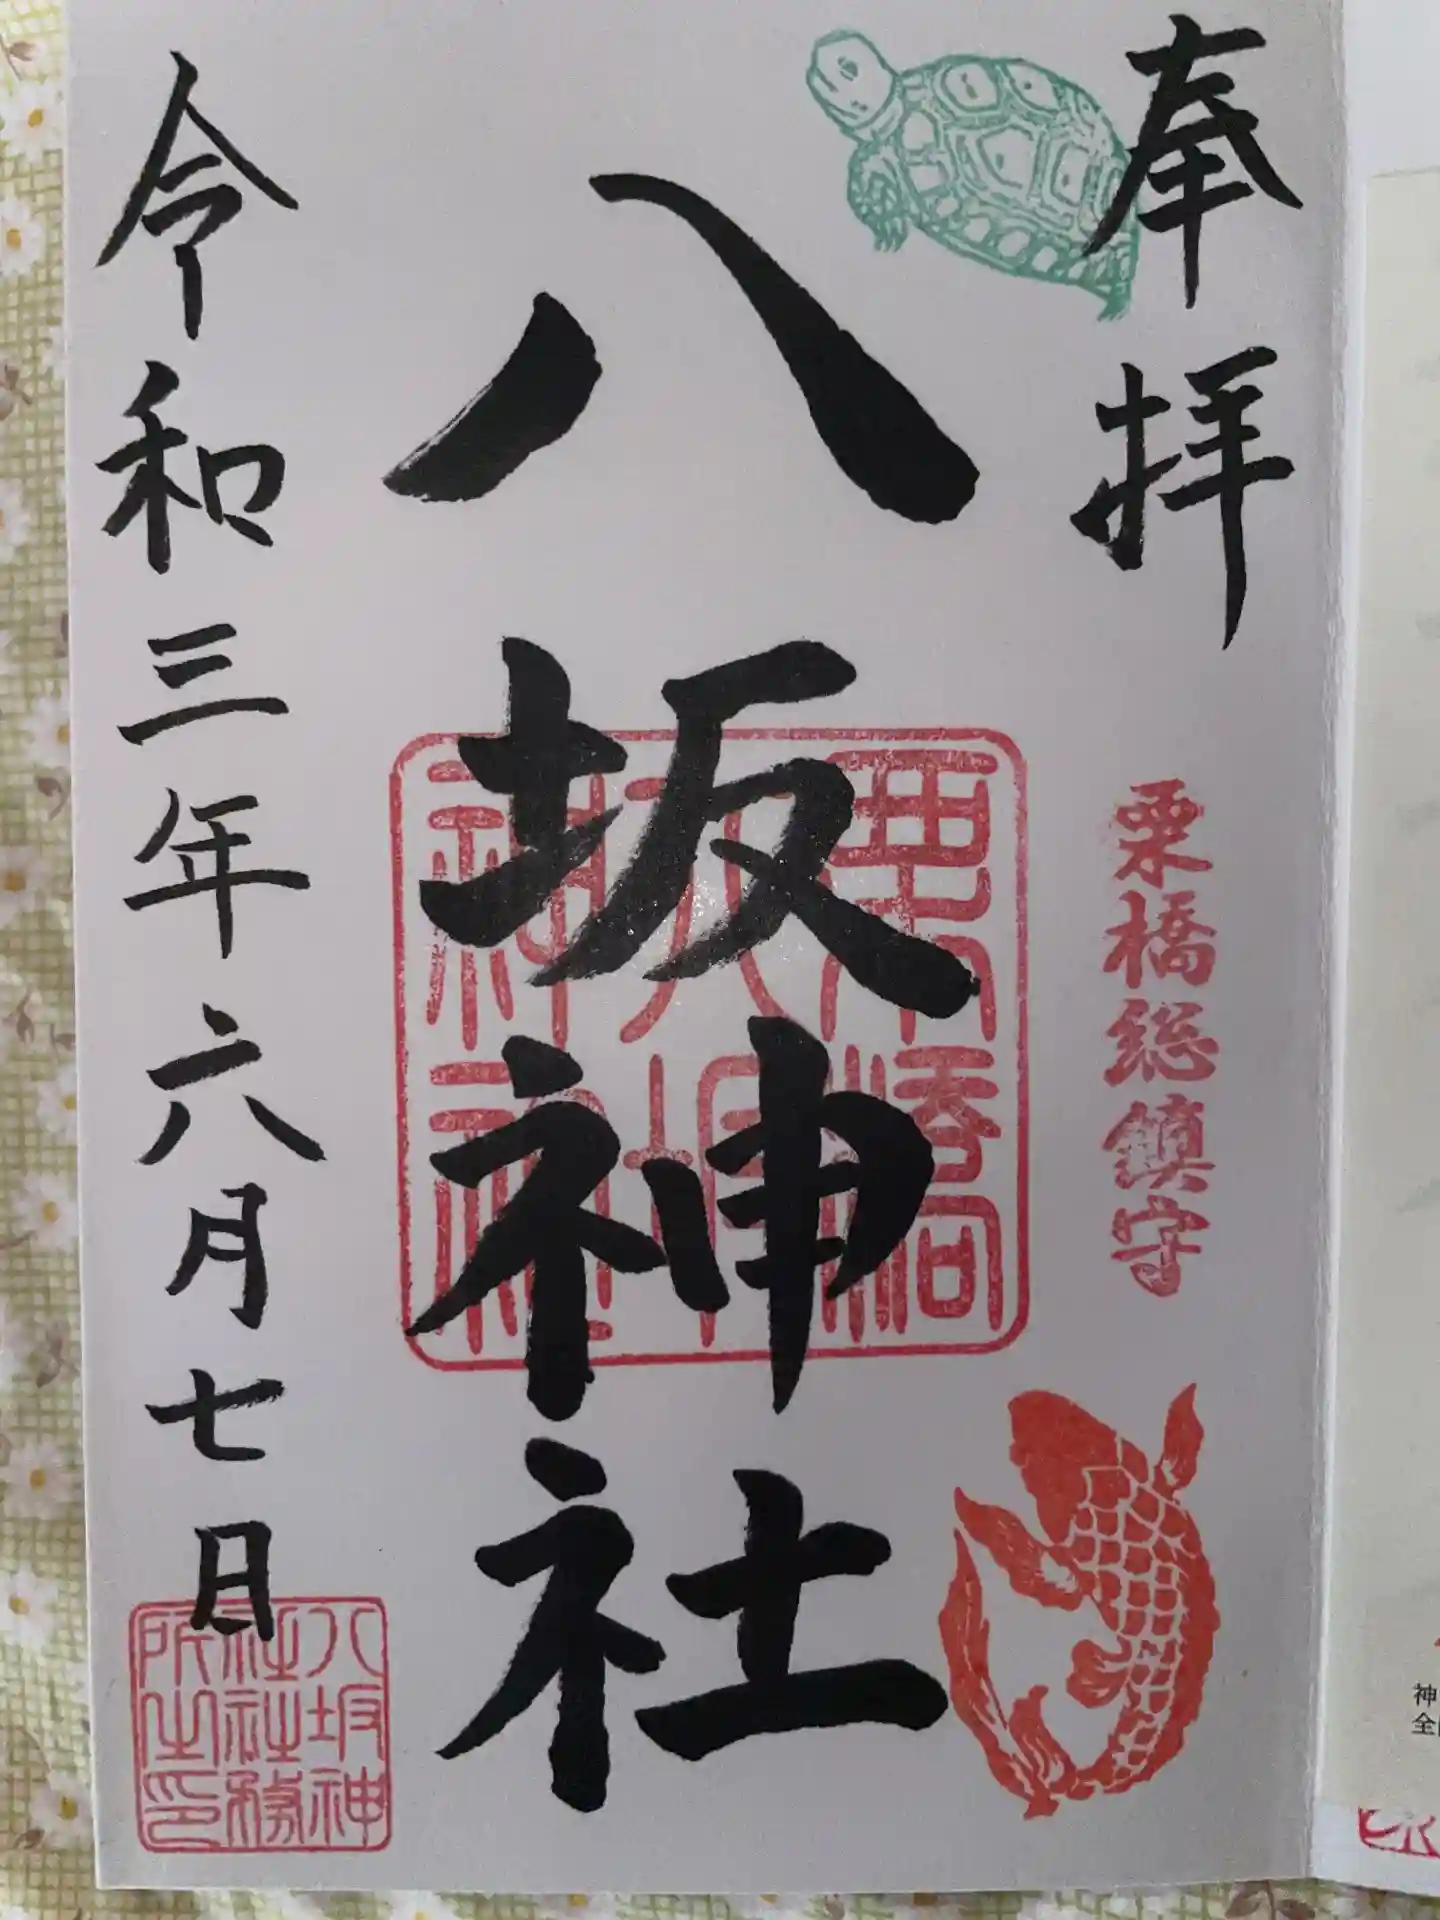 奉拝
栗橋総鎮守
八坂神社
栗橋
八坂
神社
令和三年六月七日
八坂神
社社務
所之印
神
全